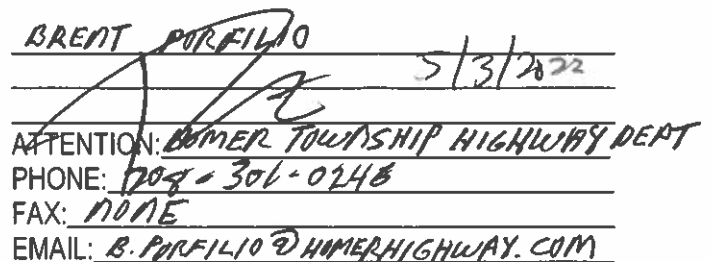 BRENT PORFILIO
5/3/2022
ATTENTION: HOMER TOWNSHIP HIGHWAY DEPT
PHONE: 708-301-0246
FAX: NONE
EMAIL: B.PORFILIO@HOMERHIGHWAY.COM